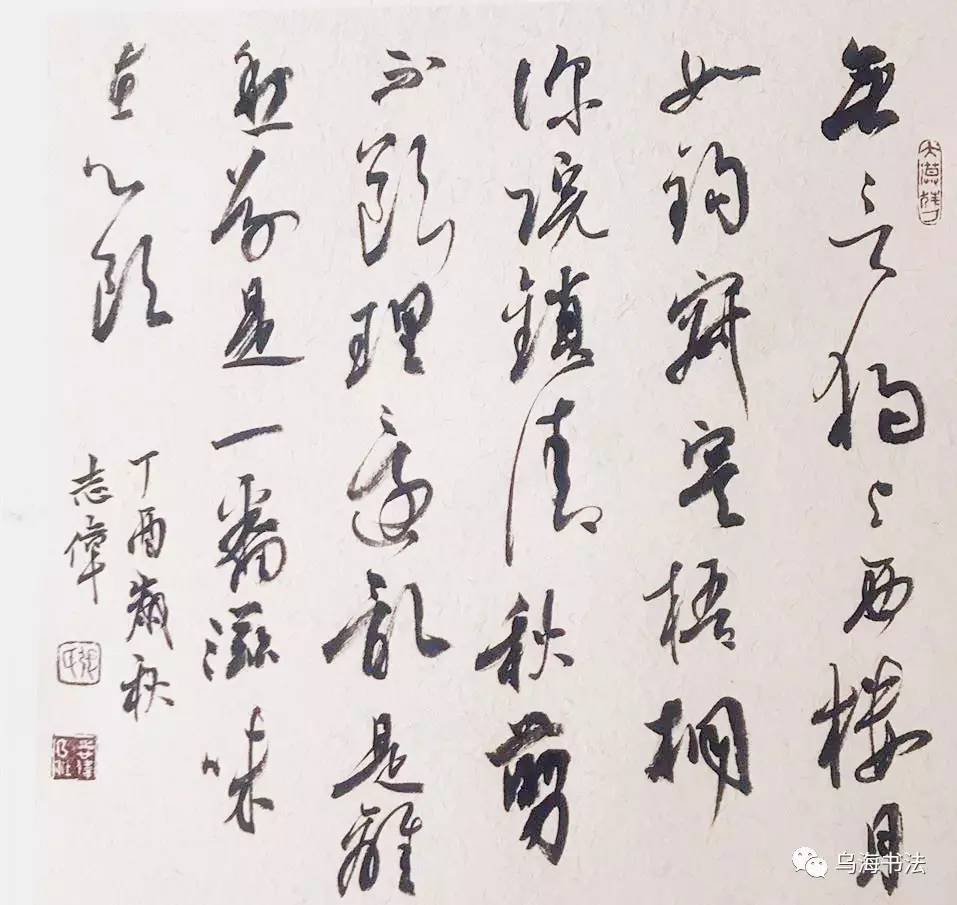 無言獨上西樓月
如鈎寂寞梧桐
深院鎖清秋剪
不斷理還亂是離
愁别是一番滋味
在心頭
丁酉歲秋
志偉
乌海书法